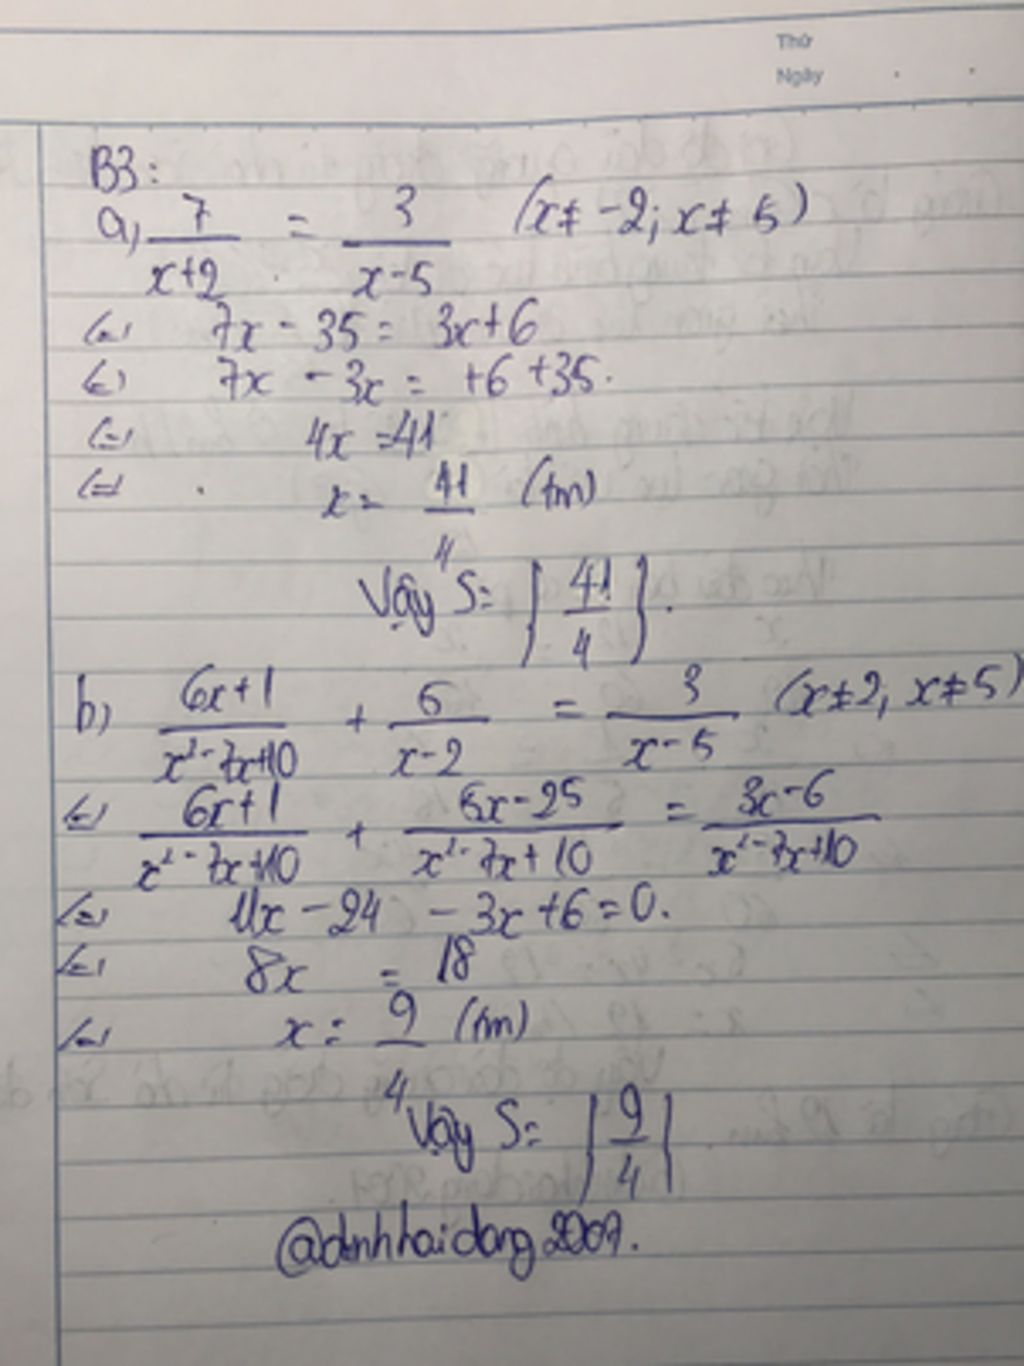 Thứ
Ngày
B3:
a, 7/(x+2) = 3/(x-5) (x≠-2; x≠5)
(=) 7x - 35 = 3x+6
(=) 7x - 3x = +6 +35.
(=) 4x = 41
(=) x = 41/4 (tm)
Vậy S= {41/4}.
b, (6x+1)/(x²-7x+10) + 5/(x-2) = 3/(x-5) (x≠2, x≠5)
(=) (6x+1)/(x²-7x+10) + (5x-25)/(x²-7x+10) = (3x-6)/(x²-7x+10)
(=) 11x - 24 - 3x + 6 = 0.
(=) 8x = 18
(=) x = 9/4 (tm)
Vậy S= {9/4}
@dinhhaidang2007.